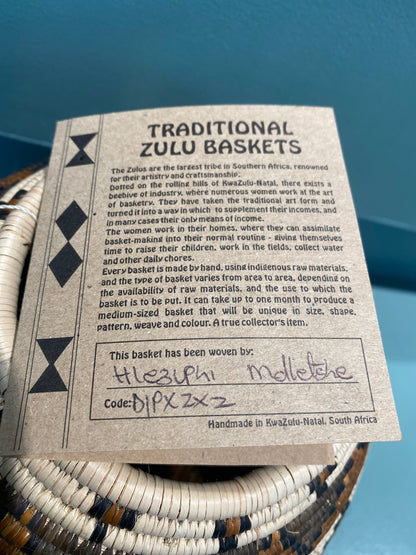 TRADITIONAL
ZULU BASKETS
The Zulus are the largest tribe in Southern Africa, renowned
for their artistry and craftsmanship.
Dotted on the rolling hills of KwaZulu-Natal, there exists a
beehive of industry, where numerous women work at the art
of basketry. They have taken the traditional art form and
turned it into a way in which to supplement their incomes, and
in many cases their only means of income.
The women work in their homes, where they can assimilate
basket-making into their normal routine - giving themselves
time to raise their children, work in the fields, collect water
and other daily chores.
Every basket is made by hand, using indigenous raw materials,
and the type of basket varies from area to area, depending on
the availability of raw materials, and the use to which the
basket is to be put. It can take up to one month to produce a
medium-sized basket that will be unique in size, shape,
pattern, weave and colour. A true collector's item.
This basket has been woven by:
Hlezuphi
Code: D1PXZXZ
Handmade in KwaZulu-Natal, South Africa